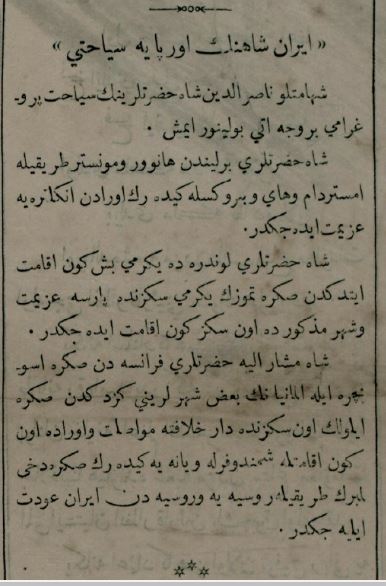 « ايران شاهنك اوروپايه سياحتي »
شهامتلو ناصر الدين شاه حضرتلرينك سياحت پرو-
غرامي بر وجه اتي بولينور ايمش .
شاه حضرتلري برليندن هانوور ومونستر طريقيله
امستردام وهاي وبروكسله كيده رك اورادن انكلتره يه
عزيمت ايده جكدر.
شاه حضرتلري لوندره ده يكرمي بش كون اقامت
ايتدكدن صكره تموزك يكرمي سكزنده پارسه عزيمت
وشهر مذكور ده اون سكز كون اقامت ايده جكدر .
شاه مشار اليه حضرتلري فرانسه دن صكره اسو-
يچره ايله المانيانك بعض شهرلريني كزدكدن صكره
ايلولك اون سكزنده دار خلافته مواصلت واوراده اون
كون اقامتله شمندوفرله ويانه يه كيده رك صكره دخي
لمبرك طريقيله روسيه يه وروسيه دن ايران عودت
ايليه جكدر .